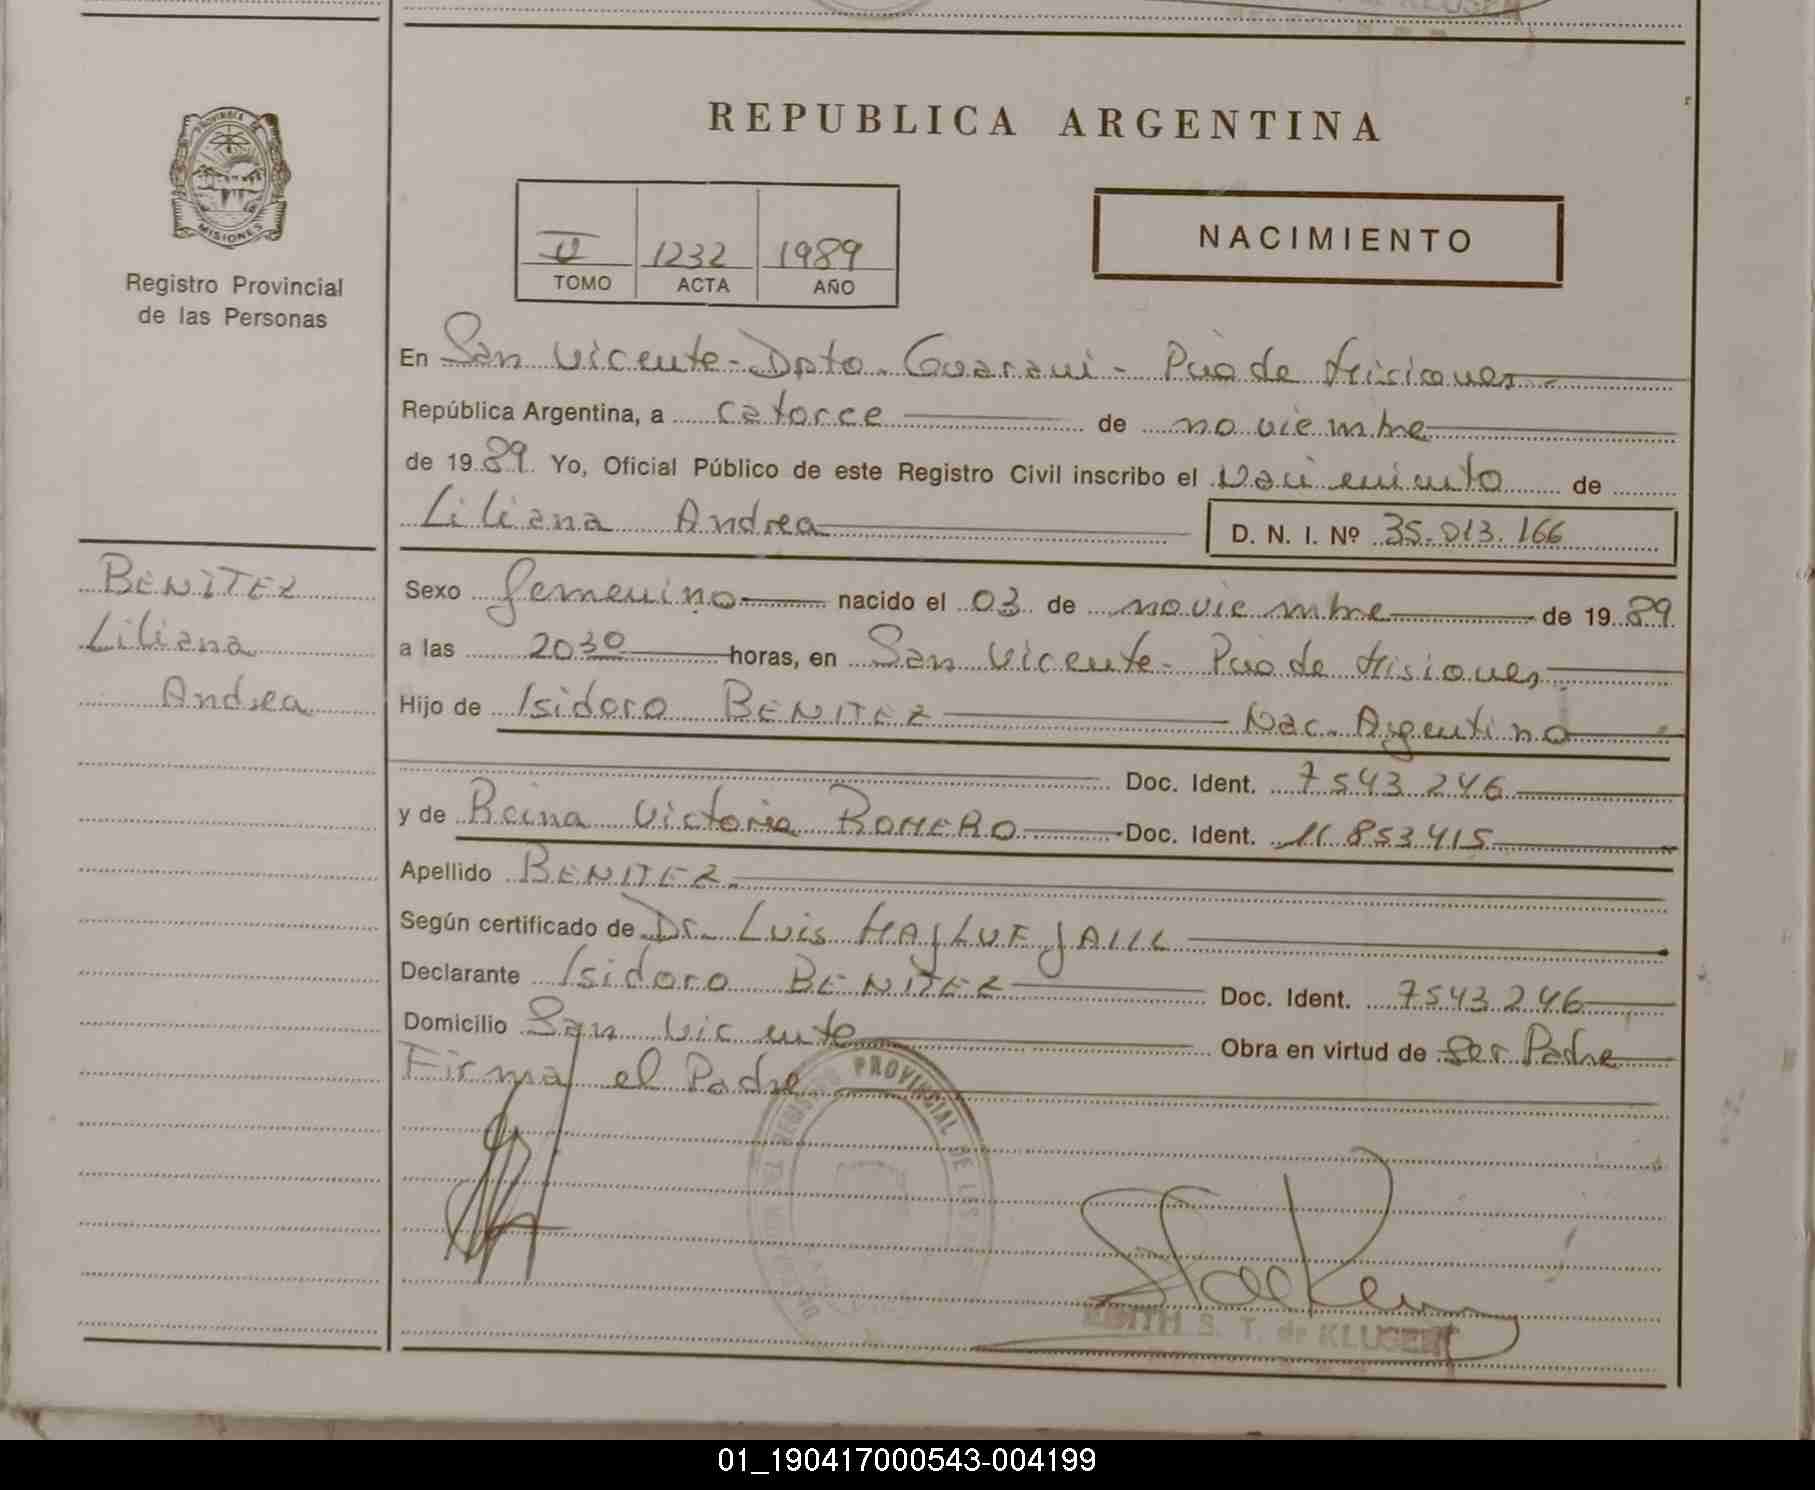 REPUBLICA ARGENTINA
PROVINCIA DE
MISIONES
Registro Provincial
de las Personas
1232 1989
TOMO ACTA AÑO
NACIMIENTO
En San Vicente - Dpto. Guarani - Pcia de Misiones
República Argentina, a catorce de noviembre
de 1989 Yo, Oficial Público de este Registro Civil inscribo el Nacimiento de
Liliana Andrea D. N. I. Nº 35.013.166
BENITEZ
Liliana
Andrea
Sexo femenino nacido el 03 de noviembre de 1989
a las 20 30 horas, en San Vicente - Pcia de Misiones
Hijo de Isidoro BENITEZ Nac. Argentino
Doc. Ident. 7543246
y de Reina Victoria ROMERO Doc. Ident. 11.853.415
Apellido BENITEZ
Según certificado de Dr. Luis
Declarante Isidoro BENITEZ Doc. Ident. 7543246
Domicilio San Vicente Obra en virtud de Ser Padre
Firma el Padre
PROVINCIAL DE LAS
EDITH S. T. de KLUSENER
01_190417000543-004199